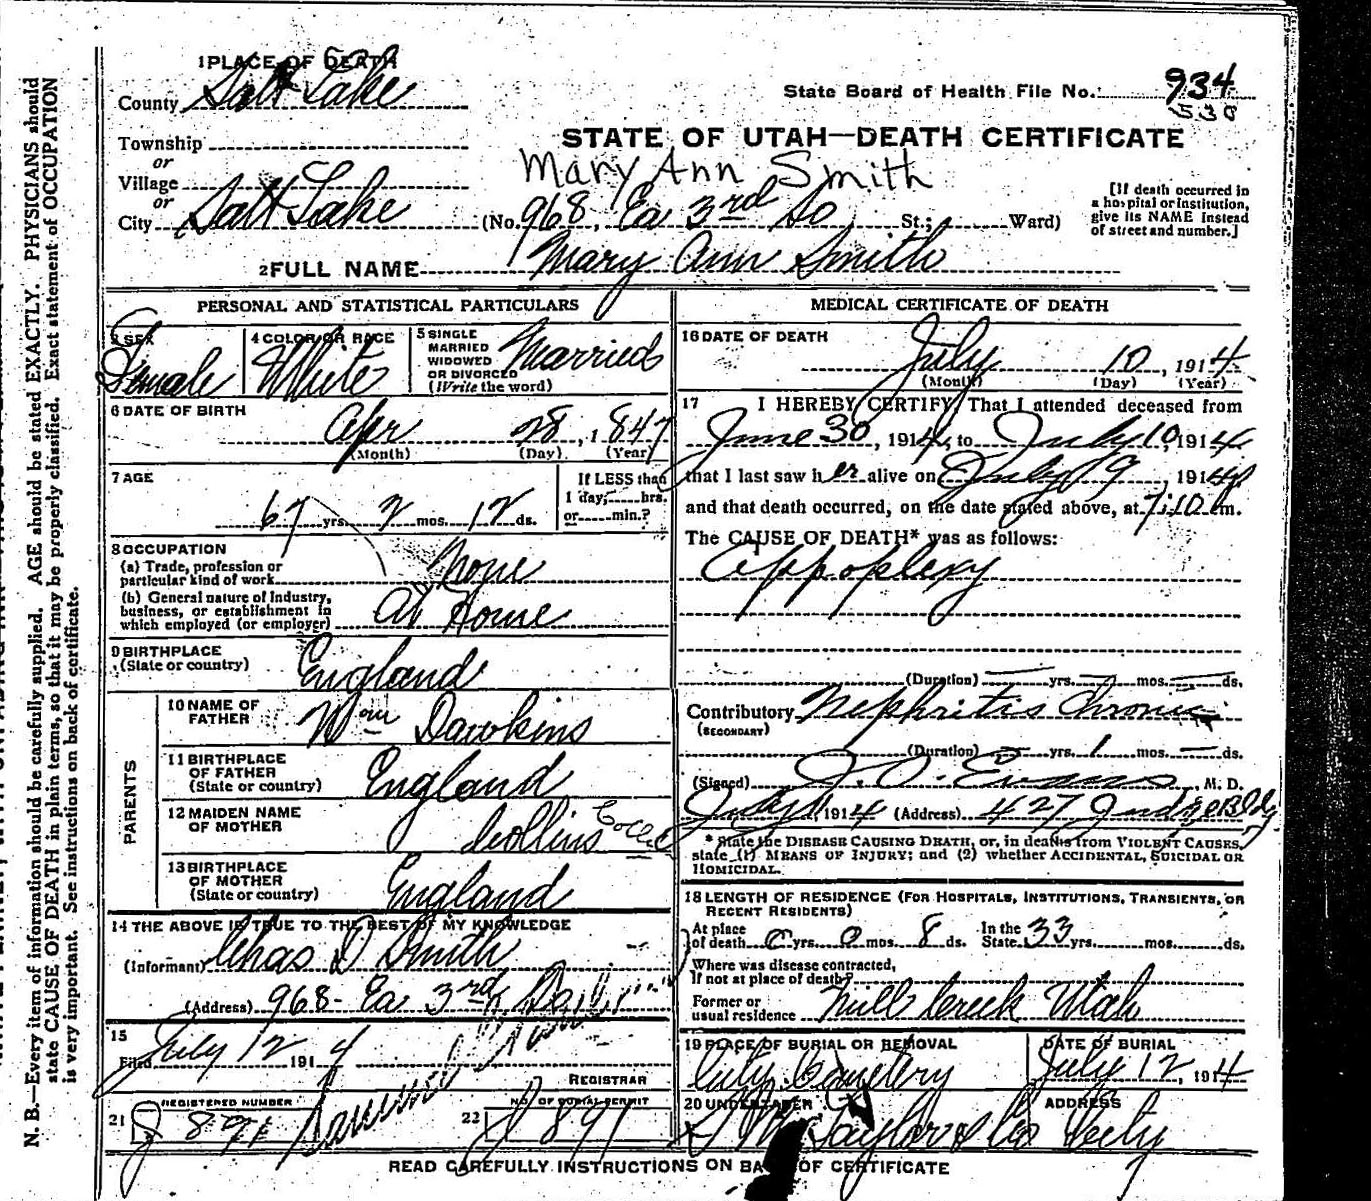 N. B.—Every item of information should be carefully supplied. AGE should be stated EXACTLY. PHYSICIANS should
state CAUSE OF DEATH in plain terms, so that it may be properly classified. Exact statement of OCCUPATION
is very important. See instructions on back of certificate.
1 PLACE OF DEATH
County Salt Lake
State Board of Health File No. 934
530
Township
or
Village
or
City Salt Lake
STATE OF UTAH—DEATH CERTIFICATE
Mary Ann Smith
(No. 968, Ea 3rd So St.; Ward)
[If death occurred in
a hospital or institution,
give its NAME instead
of street and number.]
2 FULL NAME Mary Ann Smith
PERSONAL AND STATISTICAL PARTICULARS
3 SEX
Female
4 COLOR OR RACE
White
5 SINGLE
MARRIED
WIDOWED
OR DIVORCED
(Write the word)
Married
6 DATE OF BIRTH
Apr 28, 1847
(Month) (Day) (Year)
7 AGE
67 yrs. 2 mos. 12 ds.
If LESS than
1 day, hrs.
or min.?
8 OCCUPATION
(a) Trade, profession or
particular kind of work None
(b) General nature of industry,
business, or establishment in
which employed (or employer) At Home
9 BIRTHPLACE
(State or country) England
PARENTS
10 NAME OF
FATHER Wm Dawkins
11 BIRTHPLACE
OF FATHER
(State or country) England
12 MAIDEN NAME
OF MOTHER Collins
13 BIRTHPLACE
OF MOTHER
(State or country) England
14 THE ABOVE IS TRUE TO THE BEST OF MY KNOWLEDGE
(Informant) Chas D Smith
(Address) 968- Ea 3rd
15
Filed July 12 1914
REGISTRAR
21 REGISTERED NUMBER
J 891
22 NO. OF BURIAL PERMIT
J 891
MEDICAL CERTIFICATE OF DEATH
16 DATE OF DEATH
July 10, 1914
(Month) (Day) (Year)
17 I HEREBY CERTIFY, That I attended deceased from
June 30, 1914, to July 10, 1914
that I last saw her alive on July 9, 1914
and that death occurred, on the date stated above, at 7:10 m.
The CAUSE OF DEATH* was as follows:
Appoplexy
(Duration) — yrs. — mos. — ds.
Contributory Nephritis Chronic
(SECONDARY)
(Duration) yrs. 1 mos. — ds.
(Signed) J. O. Evans, M. D.
July, 1914 (Address) 427 Judge Bldg
* State the DISEASE CAUSING DEATH, or, in deaths from VIOLENT CAUSES,
state (1) MEANS OF INJURY; and (2) whether ACCIDENTAL, SUICIDAL OR
HOMICIDAL.
18 LENGTH OF RESIDENCE (FOR HOSPITALS, INSTITUTIONS, TRANSIENTS, OR
RECENT RESIDENTS)
At place
of death 0 yrs. 0 mos. 8 ds. In the
State 33 yrs. mos. ds.
Where was disease contracted,
If not at place of death?
Former or
usual residence Mill Creek Utah
19 PLACE OF BURIAL OR REMOVAL
City Cemetery
DATE OF BURIAL
July 12, 1914
20 UNDERTAKER
S M Taylor & Co
ADDRESS
City
READ CAREFULLY INSTRUCTIONS ON BACK OF CERTIFICATE